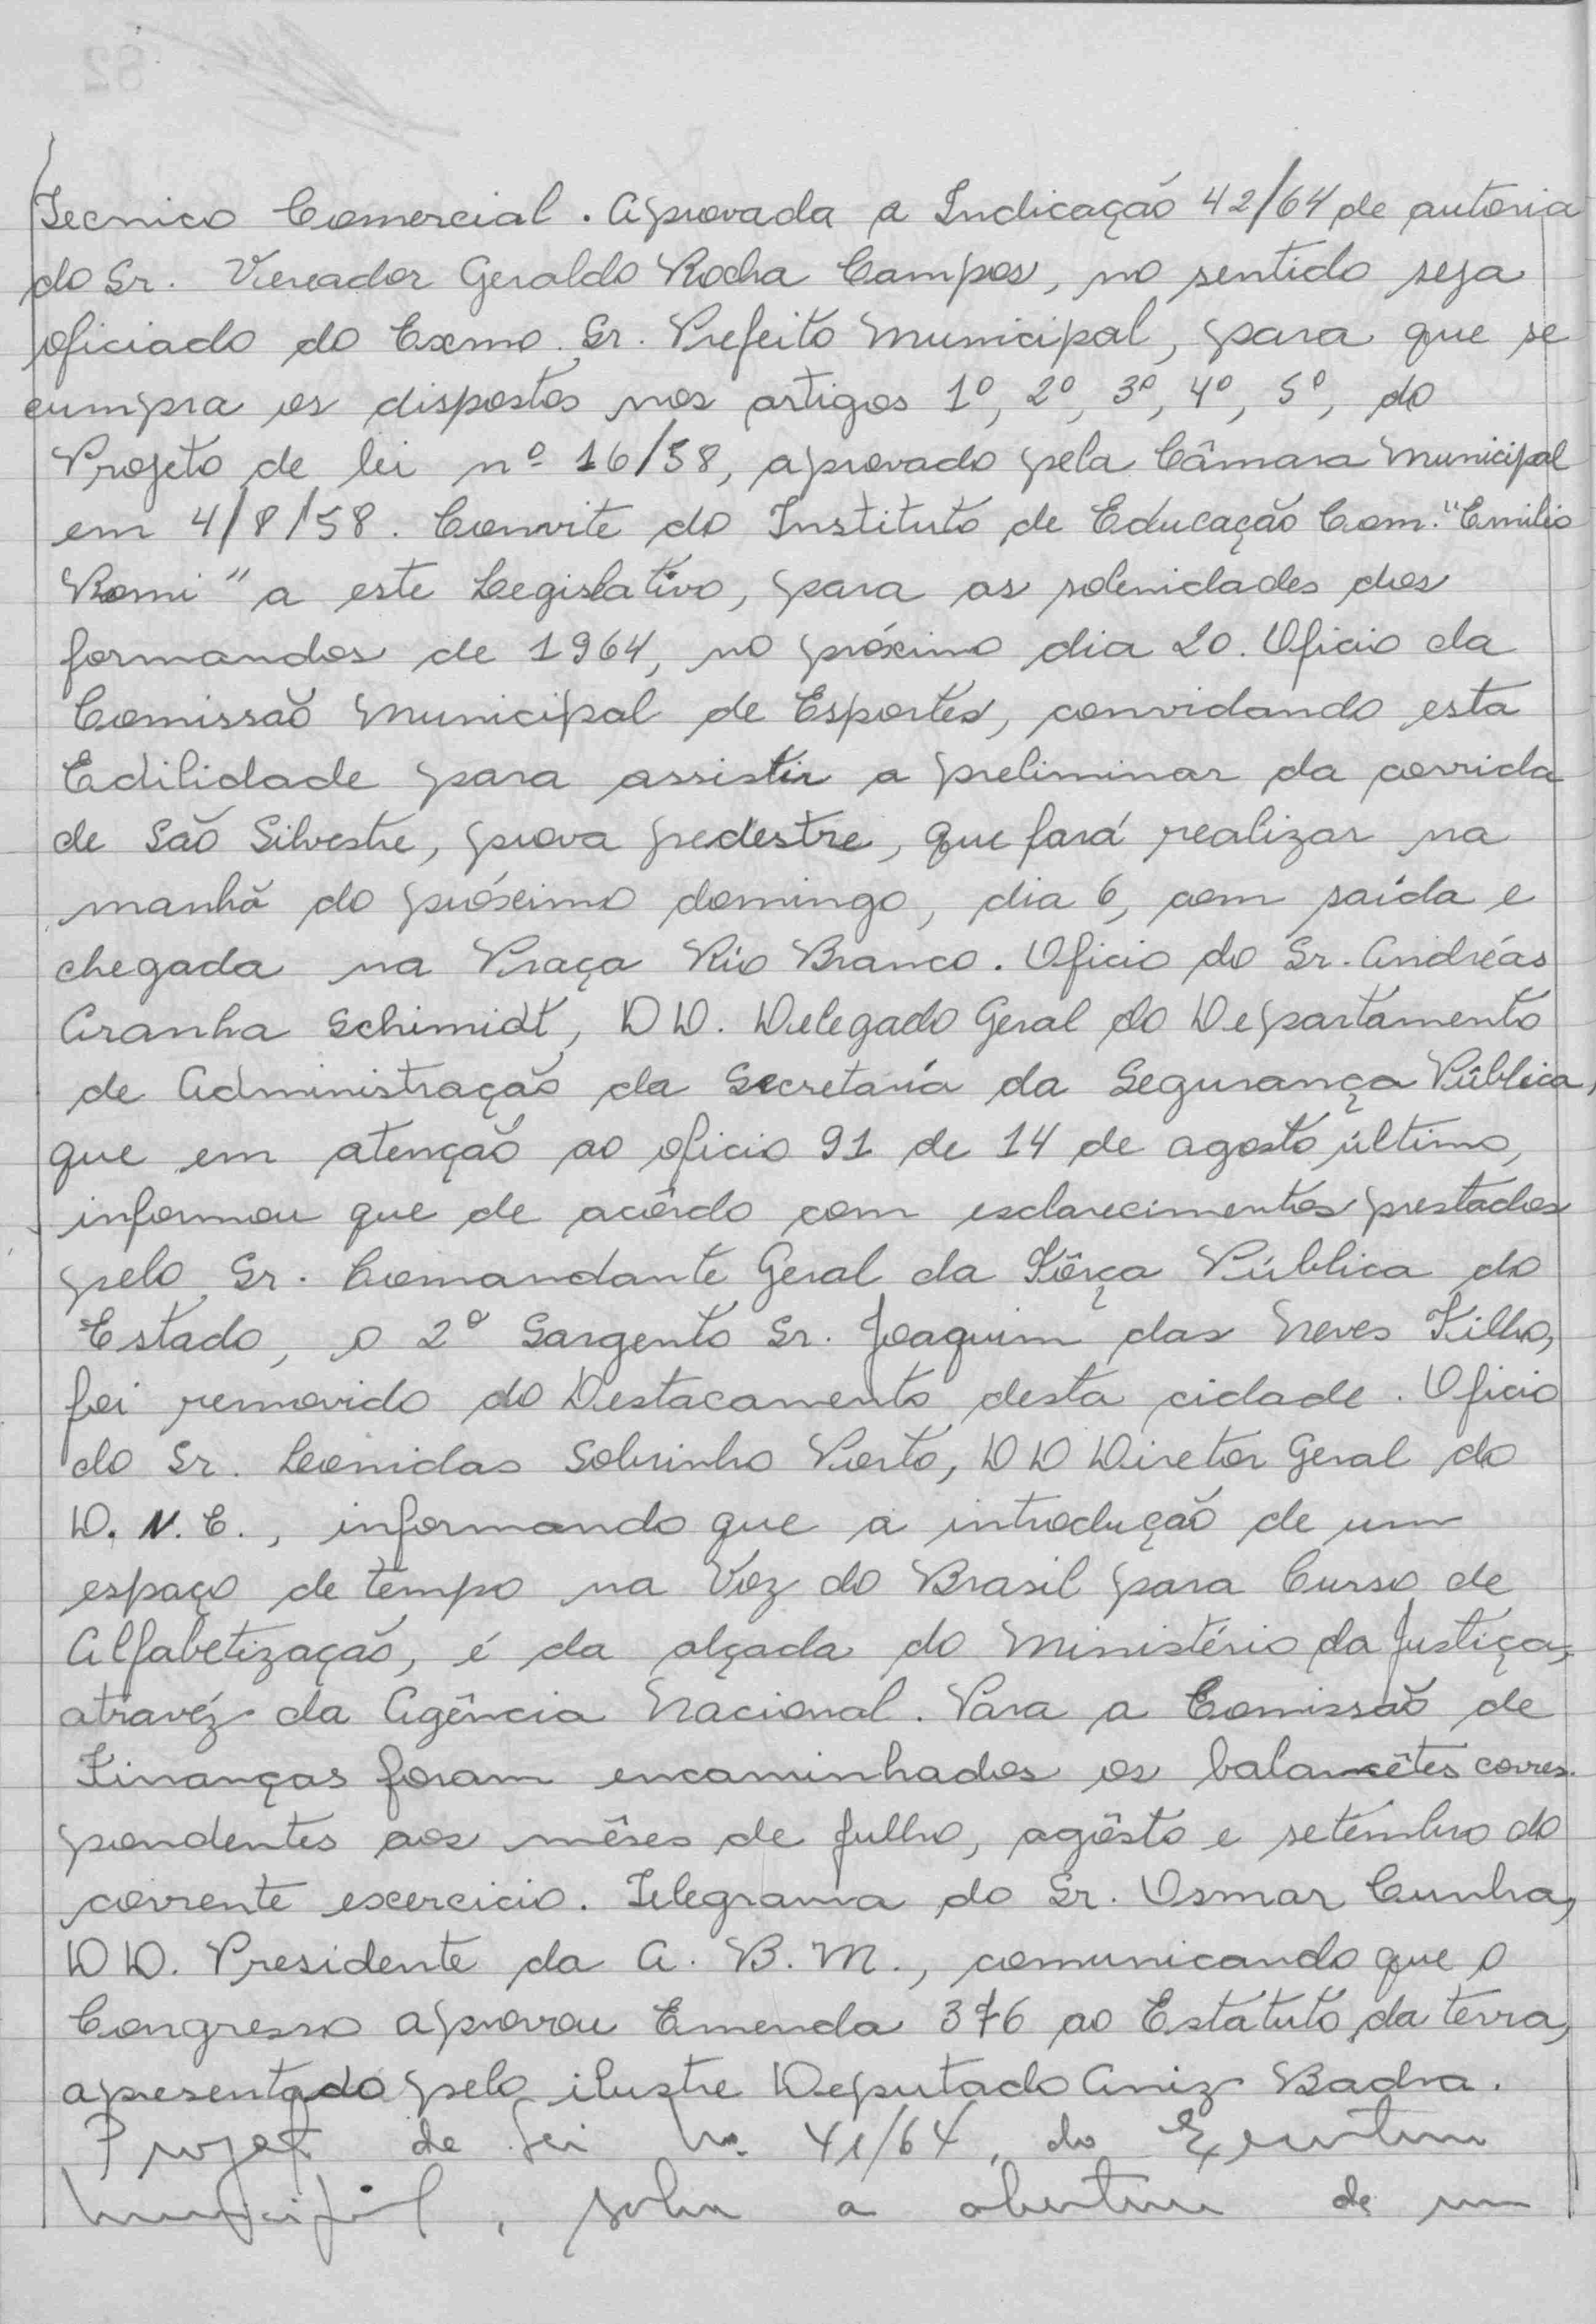 Tecnico Comercial. Aprovada a Indicação 42/64 de autoria
do Sr. Vereador Geraldo Rocha Campos, no sentido seja
oficiado do Exmo. Sr. Prefeito Municipal, para que se
cumpra os dispostos nos artigos 1º, 2º, 3º, 4º, 5º, do
Projeto de lei nº 16/58, aprovado pela Câmara Municipal
em 4/8/58. Convite do Instituto de Educação Com. "Emilio
Romi" a este Legislativo, para as solenidades dos
formandos de 1964, no próximo dia 20. Oficio da
Comissão Municipal de Esportes, convidando esta
Edilidade para assistir a preliminar da corrida
de São Silvestre, prova pedestre, que fará realizar na
manhã do próximo domingo, dia 6, com saída e
chegada na Praça Rio Branco. Oficio do Sr. Andréas
Aranha Schimidt, DD. Delegado Geral do Departamento
de Administração da Secretaría da Segurança Pública,
que em atenção ao oficio 91 de 14 de agosto último,
informou que de acôrdo com esclarecimentos prestados
pelo Sr. Comandante Geral da Fôrça Pública do
Estado, o 2º Sargento Sr. Joaquim das Neves Filho,
foi removido do Destacamento desta cidade. Oficio
do Sr. Leonidas Sobrinho Porto, DD Diretor Geral do
D. N. E., informando que a introdução de um
espaço de tempo na Voz do Brasil para Curso de
Alfabetização, é da alçada do Ministério da Justiça,
atravéz da Agência Nacional. Para a Comissão de
Finanças foram encaminhados os balancêtes corres-
pondentes aos mêses de Julho, agôsto e setembro do
corrente excercicio. Telegrama do Sr. Osmar Cunha,
DD. Presidente da A. B. M., comunicando que o
Congresso aprovou Emenda 376 ao Estatuto da terra,
apresentado pelo ilustre Deputado Aniz Badra.
Projet de Lei no. 41/64, do Executivo
Municipal, sobre a abertura de um